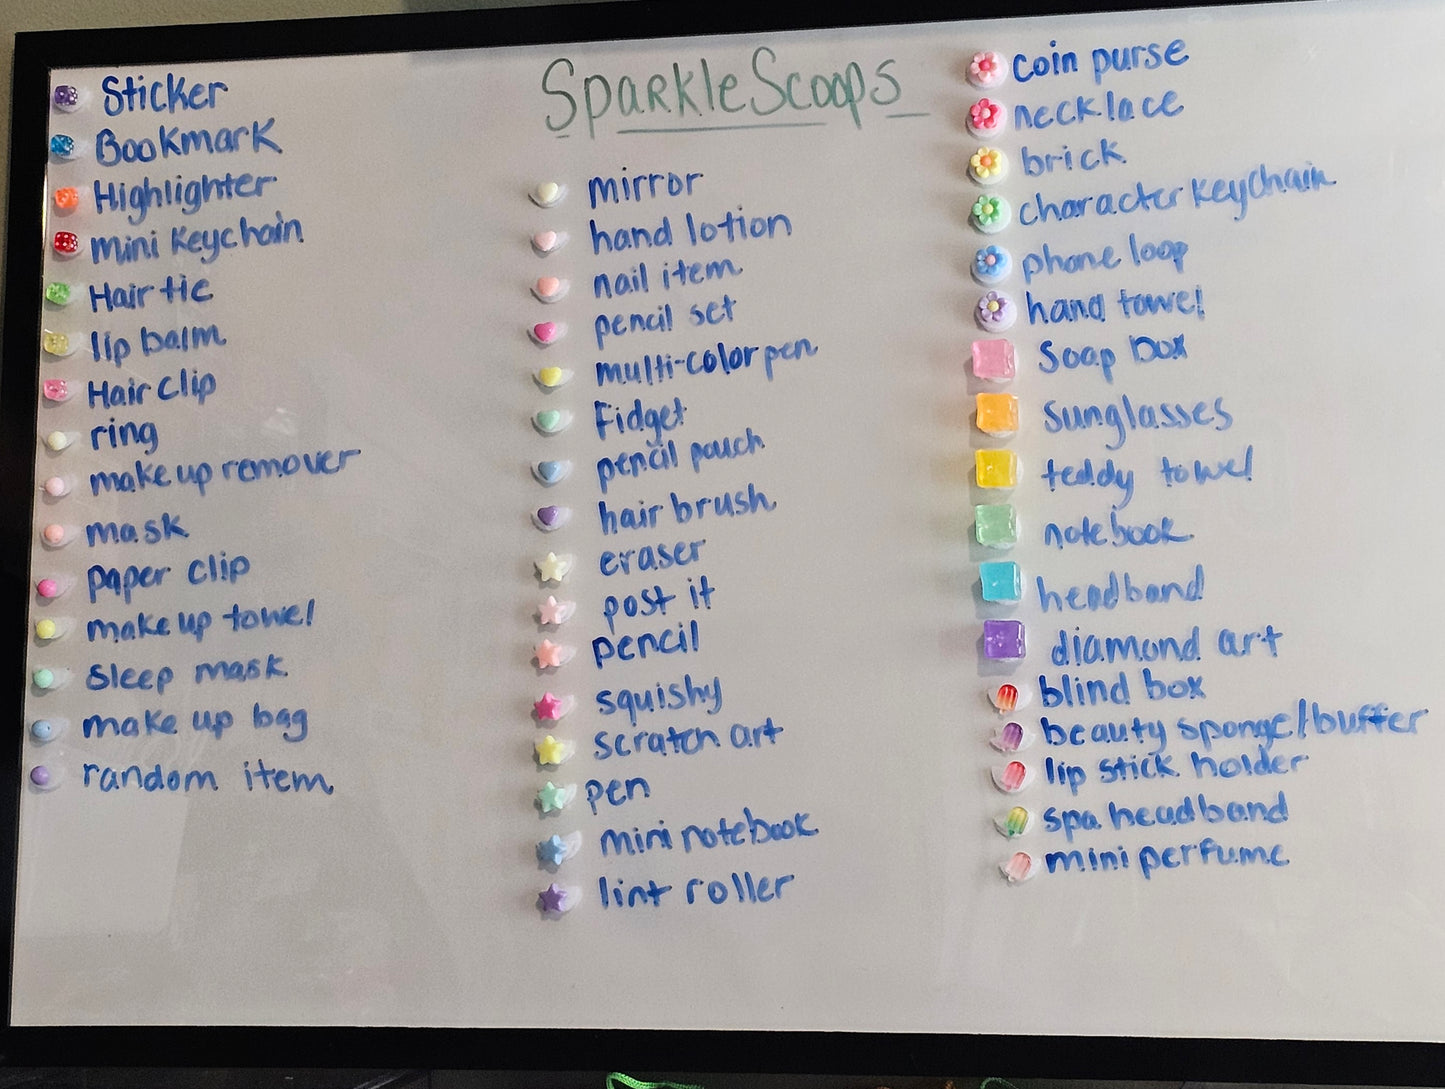 SparkleScoops
Sticker
Bookmark
Highlighter
mini Keychain
Hair tie
lip balm
Hair clip
ring
make up remover
mask
paper clip
make up towel
sleep mask
make up bag
random item
mirror
hand lotion
nail item
pencil set
multi-color pen
Fidget
pencil pouch
hair brush
eraser
post it
pencil
squishy
scratch art
pen
mini notebook
lint roller
coin purse
necklace
brick
character Keychain
phone loop
hand towel
Soap box
Sunglasses
teddy towel
notebook
headband
diamond art
blind box
beauty sponge/buffer
lip stick holder
spa headband
mini perfume